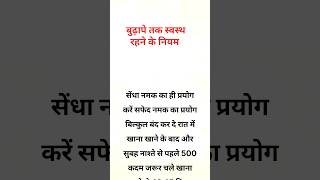 बुढ़ापे तक स्वस्थ
रहने के नियम
सेंधा नमक का ही प्रयोग
करें सफेद नमक का प्रयोग
बिल्कुल बंद कर दे रात में
खाना खाने के बाद और
सुबह नाश्ते से पहले 500
कदम जरूर चले खाना